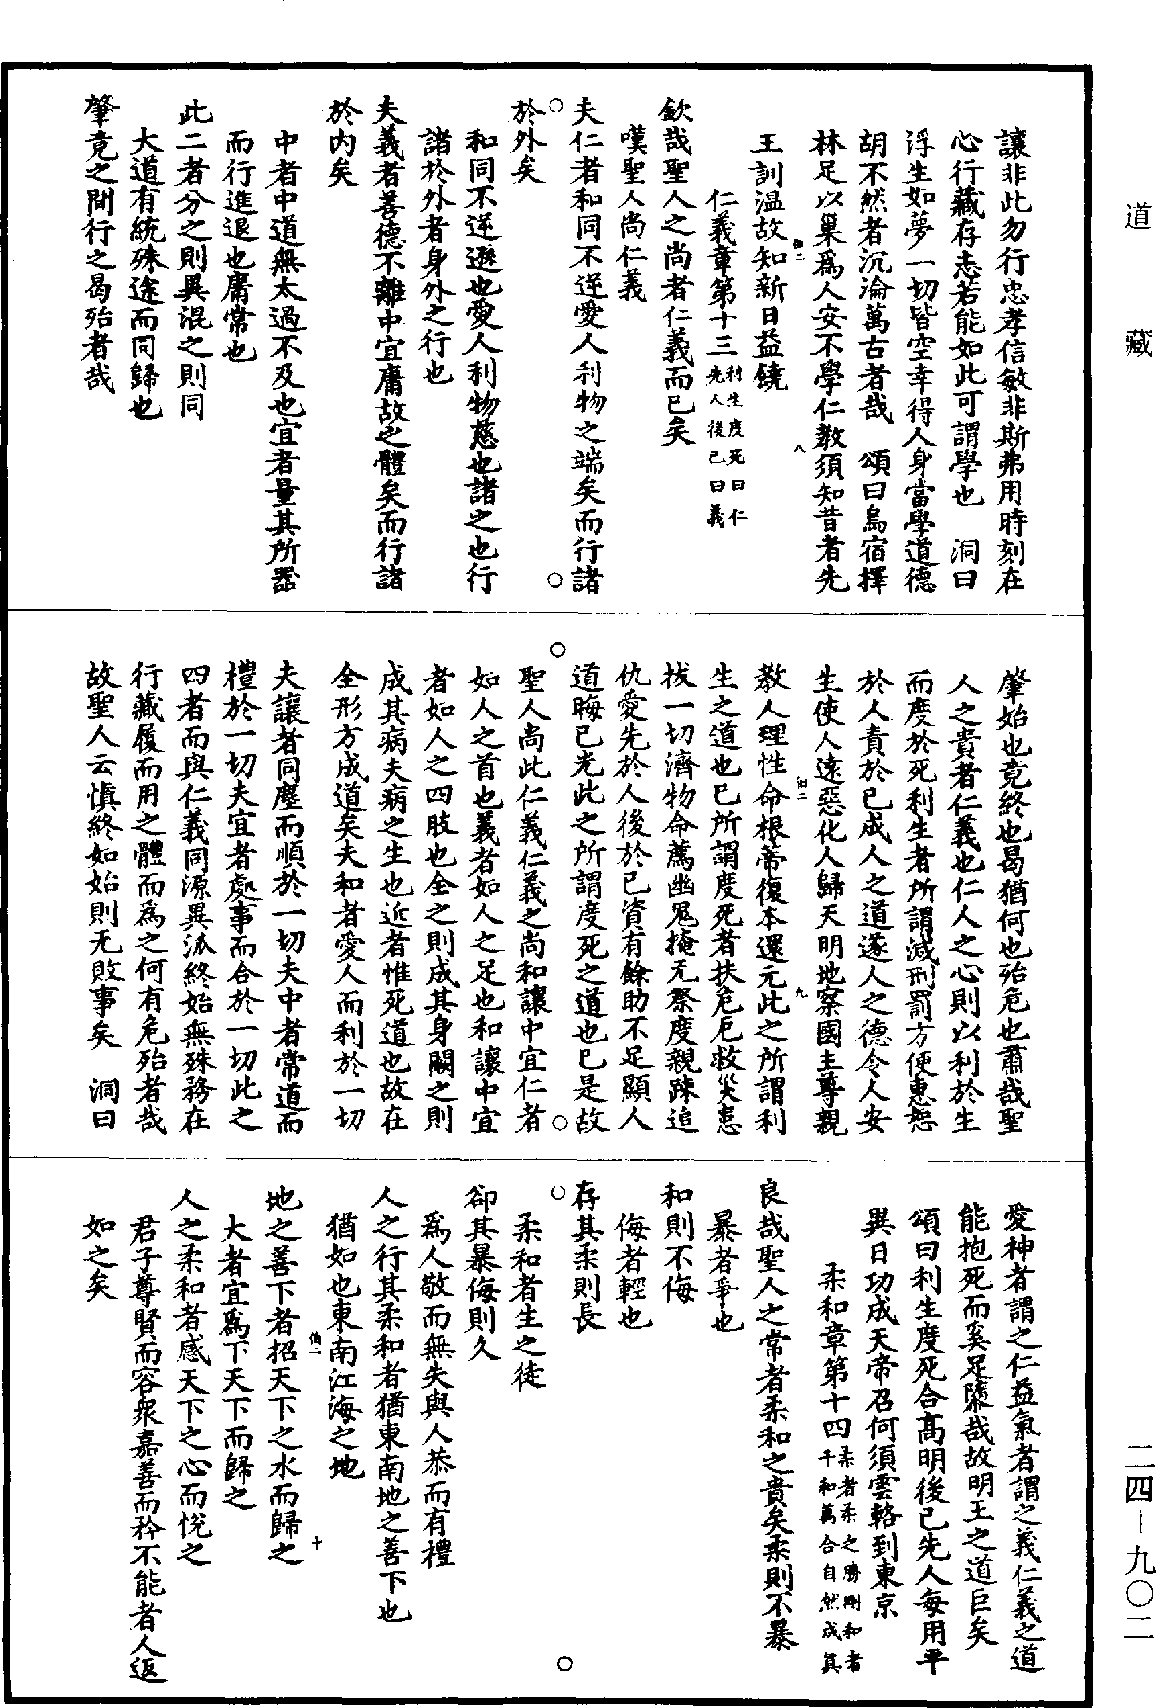 道藏
讓非此勿行忠孝信敏非斯弗用時刻在
心行藏存志若能如此可謂學也　洞曰
浮生如夢一切皆空幸得人身當學道德
胡不然者沉淪萬古者哉　頌曰烏宿擇
林足以巢為人安不學仁教須知昔者先
王訓温故知新日益饒
仁義章第十三利生度死曰仁先人後己曰義
欽哉聖人之尚者仁義而已矣
嘆聖人尚仁義
夫仁者和同不逆愛人利物之端矣而行諸
於外矣
和同不逆遜也愛人利物慈也諸之也行
諸於外者身外之行也
夫義者善德不離中宜庸故之體矣而行諸
於內矣
中者中道無太過不及也宜者量其所器
而行進退也庸常也
此二者分之則異混之則同
大道有統殊途而同歸也
肇竟之間行之曷殆者哉
肇始也竟終也曷猶何也殆危也肅哉聖
人之貴者仁義也仁人之心則以利於生
而度於死利生者所謂減刑罰方便惠恕
於人責於己成人之道遂人之德令人安
生使人遠惡化人歸天明地察國主尊親
教人理性命根蒂復本還元此之所謂利
生之道也已所謂度死者扶危厄救災患
拔一切濟物命薦幽冤掩无祭度親疎追
仇愛先於人後於己資有餘助不足顯人
道晦己光此之所謂度死之道也已是故
聖人尚此仁義仁義之尚和讓中宜仁者
如人之首也義者如人之足也和讓中宜
者如人之四肢也全之則成其身闕之則
成其病夫病之生也近者惟死道也故在
全形方成道矣夫和者愛人而利於一切
夫讓者同塵而順於一切夫中者常道而
禮於一切夫宜者處事而合於一切此之
四者而與仁義同源異派終始無殊務在
行藏履而用之體而為之何有危殆者哉
故聖人云慎終如始則无敗事矣　洞曰
愛神者謂之仁益氣者謂之義仁義之道
能抱死而奚足隳哉故明王之道巨矣
頌曰利生度死合高明後己先人每用平
異日功成天帝召何須雲輅到東京
柔和章第十四柔者柔之勝剛和者千和萬合自然成真
良哉聖人之常者柔和之貴矣柔則不暴
暴者爭也
和則不侮
侮者輕也
存其柔則長
柔和者生之徒
卻其暴侮則久
為人敬而無失與人恭而有禮
人之行其柔和者猶東南地之善下也
猶如也東南江海之地
地之善下者招天下之水而歸之
大者宜為下天下而歸之
人之柔和者感天下之心而悅之
君子尊賢而容衆嘉善而矜不能者人返
如之矣
二四-九〇二